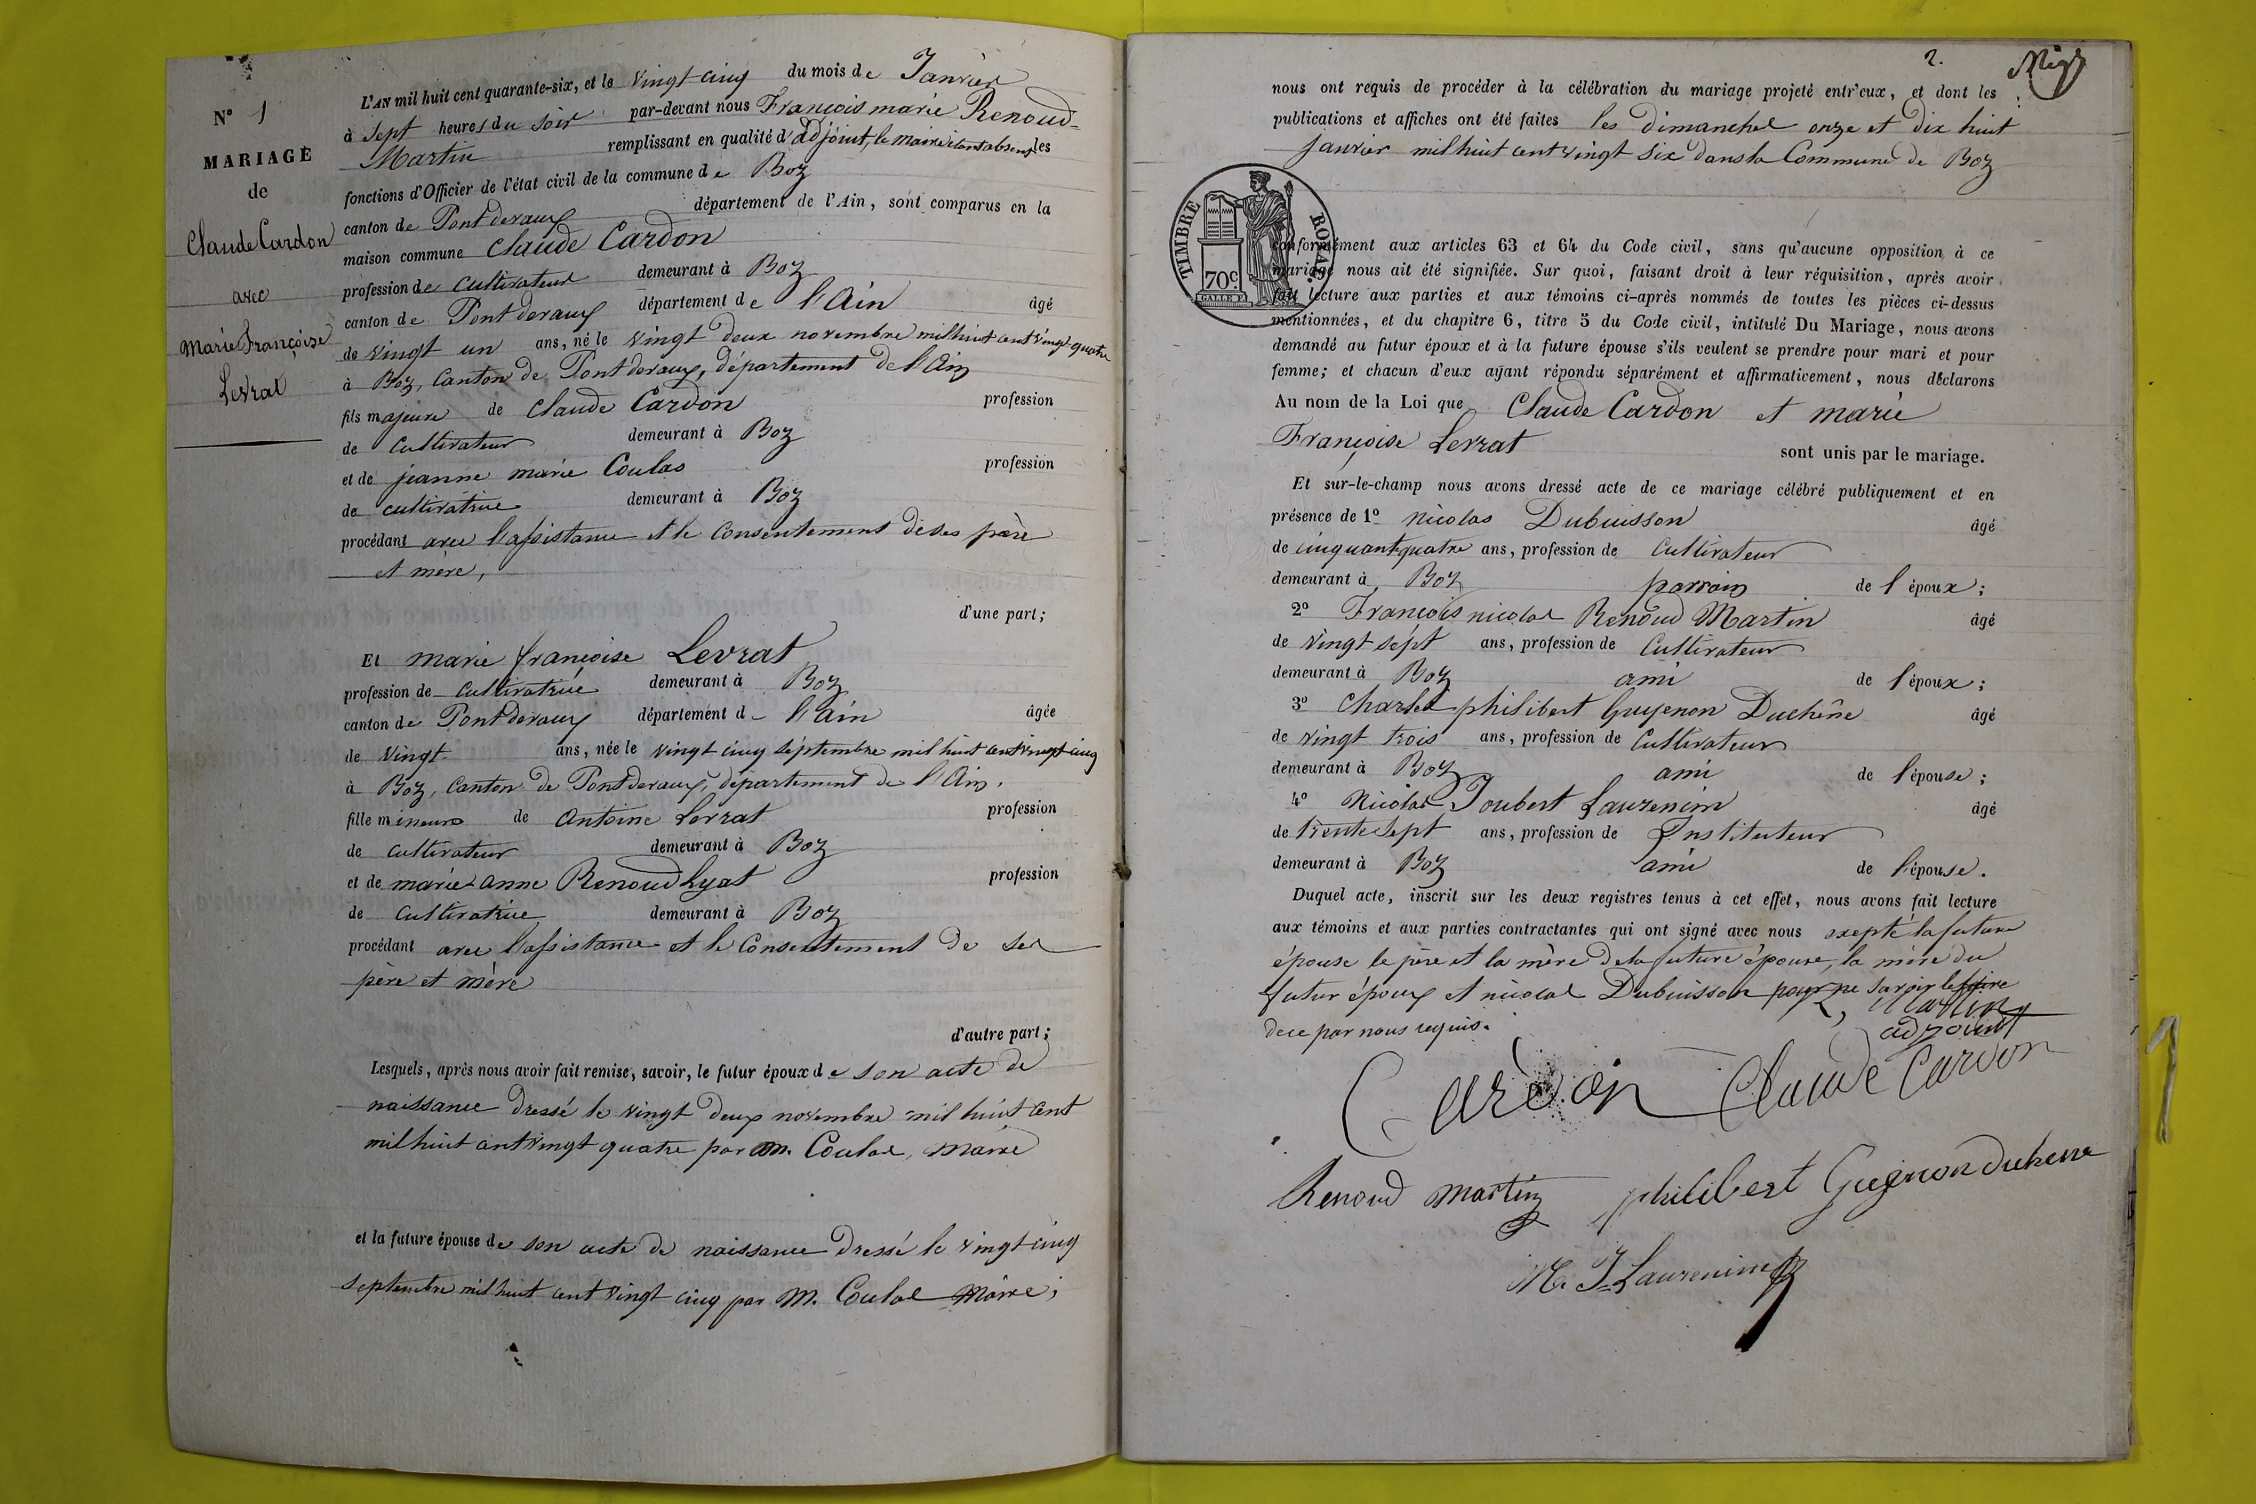 N° 1
MARIAGE
de
Claude Cardon
avec
Marie Françoise
Levrat
L'AN mil huit cent quarante-six, et le vingt cinq du mois de Janvier
à sept heures du soir par-devant nous François marie Renoud-
Martin remplissant en qualité d'adjoint, le maire étant absent les
fonctions d'Officier de l'état civil de la commune de Boz
canton de Pontdevaux département de l'Ain, sont comparus en la
maison commune Claude Cardon
profession de cultivateur demeurant à Boz
canton de Pontdevaux département de l'Ain âgé
de vingt un ans, né le vingt deux novembre mil huit cent vingt quatre
à Boz, Canton de Pontdevaux, département de l'Ain
fils majeur de Claude Cardon profession
de cultivateur demeurant à Boz
et de jeanne marie Coulas profession
de cultivatrice demeurant à Boz
procédant avec l'assistance et le consentement de ses père
et mère,
d'une part;
Et marie françoise Levrat
profession de cultivatrice demeurant à Boz
canton de Pontdevaux département d l'ain âgée
de vingt ans, née le vingt cinq septembre mil huit cent vingt cinq
à Boz, Canton de Pontdevaux, département de l'Ain.
fille mineure de Antoine Levrat profession
de cultivateur demeurant à Boz
et de marie anne Renoud Lyat profession
de cultivatrice demeurant à Boz
procédant avec l'assistance et le Consentement de ses
père et mère
d'autre part;
Lesquels, après nous avoir fait remise, savoir, le futur époux de son acte de
naissance dressé le vingt deux novembre mil huit cent
mil huit cent vingt quatre par m. Coulas, maire
et la future épouse de son acte de naissance dressé le vingt cinq
septembre mil huit cent vingt cinq par M. Coulas maire;
2.
nous ont requis de procéder à la célébration du mariage projeté entr'eux, et dont les
publications et affiches ont été faites les dimanches onze et dix huit
janvier mil huit cent vingt six dans la Commune de Boz
TIMBRE ROYAL
70c
conformément aux articles 63 et 64 du Code civil, sans qu'aucune opposition à ce
mariage nous ait été signifiée. Sur quoi, faisant droit à leur réquisition, après avoir
fait lecture aux parties et aux témoins ci-après nommés de toutes les pièces ci-dessus
mentionnées, et du chapitre 6, titre 5 du Code civil, intitulé Du Mariage, nous avons
demandé au futur époux et à la future épouse s'ils veulent se prendre pour mari et pour
femme; et chacun d'eux ayant répondu séparément et affirmativement, nous déclarons
Au nom de la Loi que Claude Cardon et marie
Françoise Levrat sont unis par le mariage.
Et sur-le-champ nous avons dressé acte de ce mariage célébré publiquement et en
présence de 1° Nicolas Dubuisson âgé
de cinquante quatre ans, profession de Cultivateur
demeurant à Boz parrain de l'époux;
2° François nicolas Renoud Martin âgé
de vingt sept ans, profession de Cultivateur
demeurant à Boz ami de l'époux;
3° Charles philibert Guyenon Duchêne âgé
de vingt trois ans, profession de Cultivateur
demeurant à Boz ami de l'épouse;
4° Nicolas Joubert Laurencin âgé
de trente sept ans, profession de Instituteur
demeurant à Boz ami de l'épouse.
Duquel acte, inscrit sur les deux registres tenus à cet effet, nous avons fait lecture
aux témoins et aux parties contractantes qui ont signé avec nous excepté la future
épouse le père et la mère de la future épouse, la mère du
futur époux et nicolas Dubuisson pour ne savoir le faire
de ce par nous requis.
Martin
adjoint
Cardon Claude Cardon
Renoud Martin philibert Guyenon duchene
N. J. Laurencin